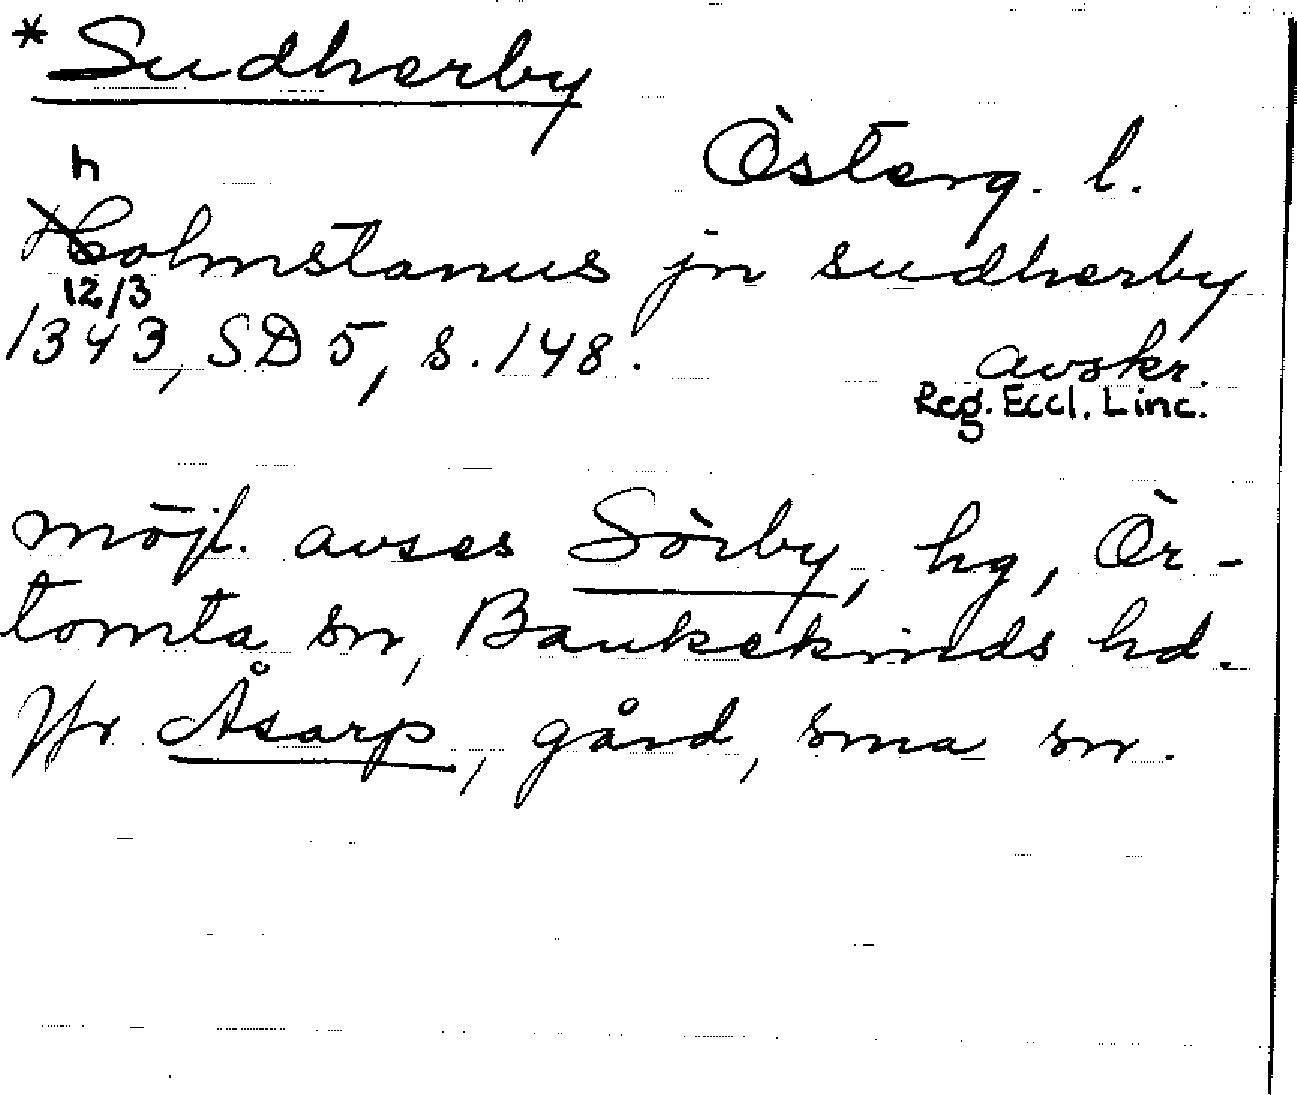 *Sudherby
Österg. l.
holmstanus jn sudherby
12/3
1343, SD 5, s. 148.
avskr.
Reg. Eccl. Linc.
möjl. avses Sörby, hg, Ör-
tomta sn, Bankekinds hd.
Jfr Åsarp, gård, sma sn.